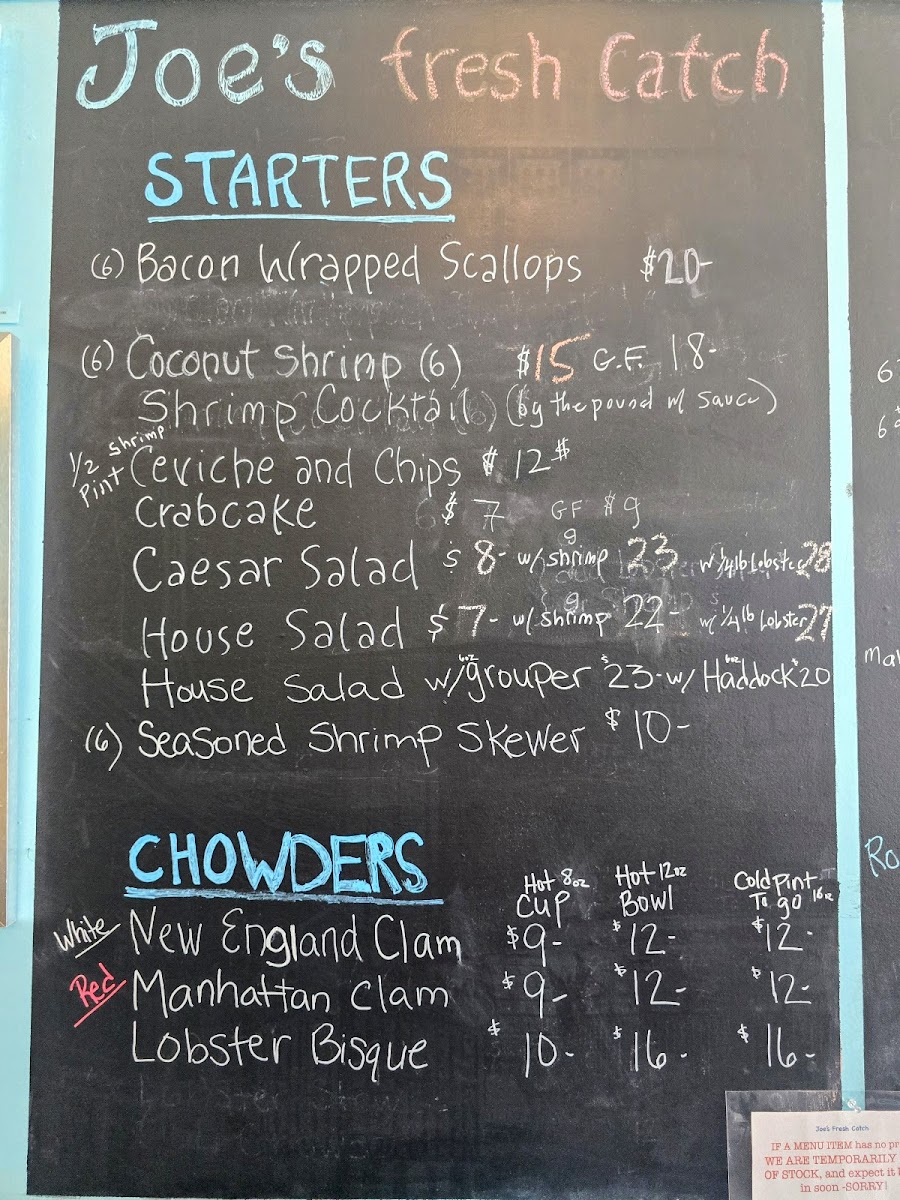 Joe's fresh Catch
STARTERS
(6) Bacon Wrapped Scallops $20-
(6) Coconut Shrimp (6) $15 G.F. 18-
Shrimp Cocktail (by the pound w/ sauce)
1/2 Pint Shrimp Ceviche and Chips $ 12$
Crabcake $ 7 GF $9
Caesar Salad $ 8- w/ 9 shrimp 23 w/ 1/4lb Lobster 28
House Salad $7- w/ 9 shrimp 22- w/ 1/4lb Lobster 27
House Salad w/ 6oz grouper $23- w/ 6oz Haddock $20
(6) Seasoned Shrimp Skewer $10-
CHOWDERS
Hot 8oz Cup Hot 12oz Bowl Cold Pint To go 16oz
White New England Clam $9- $12- $12-
Red Manhattan Clam $9- $12- $12-
Lobster Bisque $10- $16- $16-
Joe's Fresh Catch
IF A MENU ITEM has no
WE ARE TEMPORARILY
OF STOCK, and expect it
in soon -SORRY!